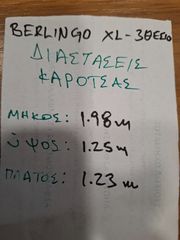 BERLINGO XL - 3ΘΕΣΙΟ
ΔΙΑΣΤΑΣΕΙΣ
ΚΑΡΟΤΣΑΣ
ΜΗΚΟΣ: 1.98 m
ΥΨΟΣ: 1.25 m
ΠΛΑΤΟΣ: 1.23 m